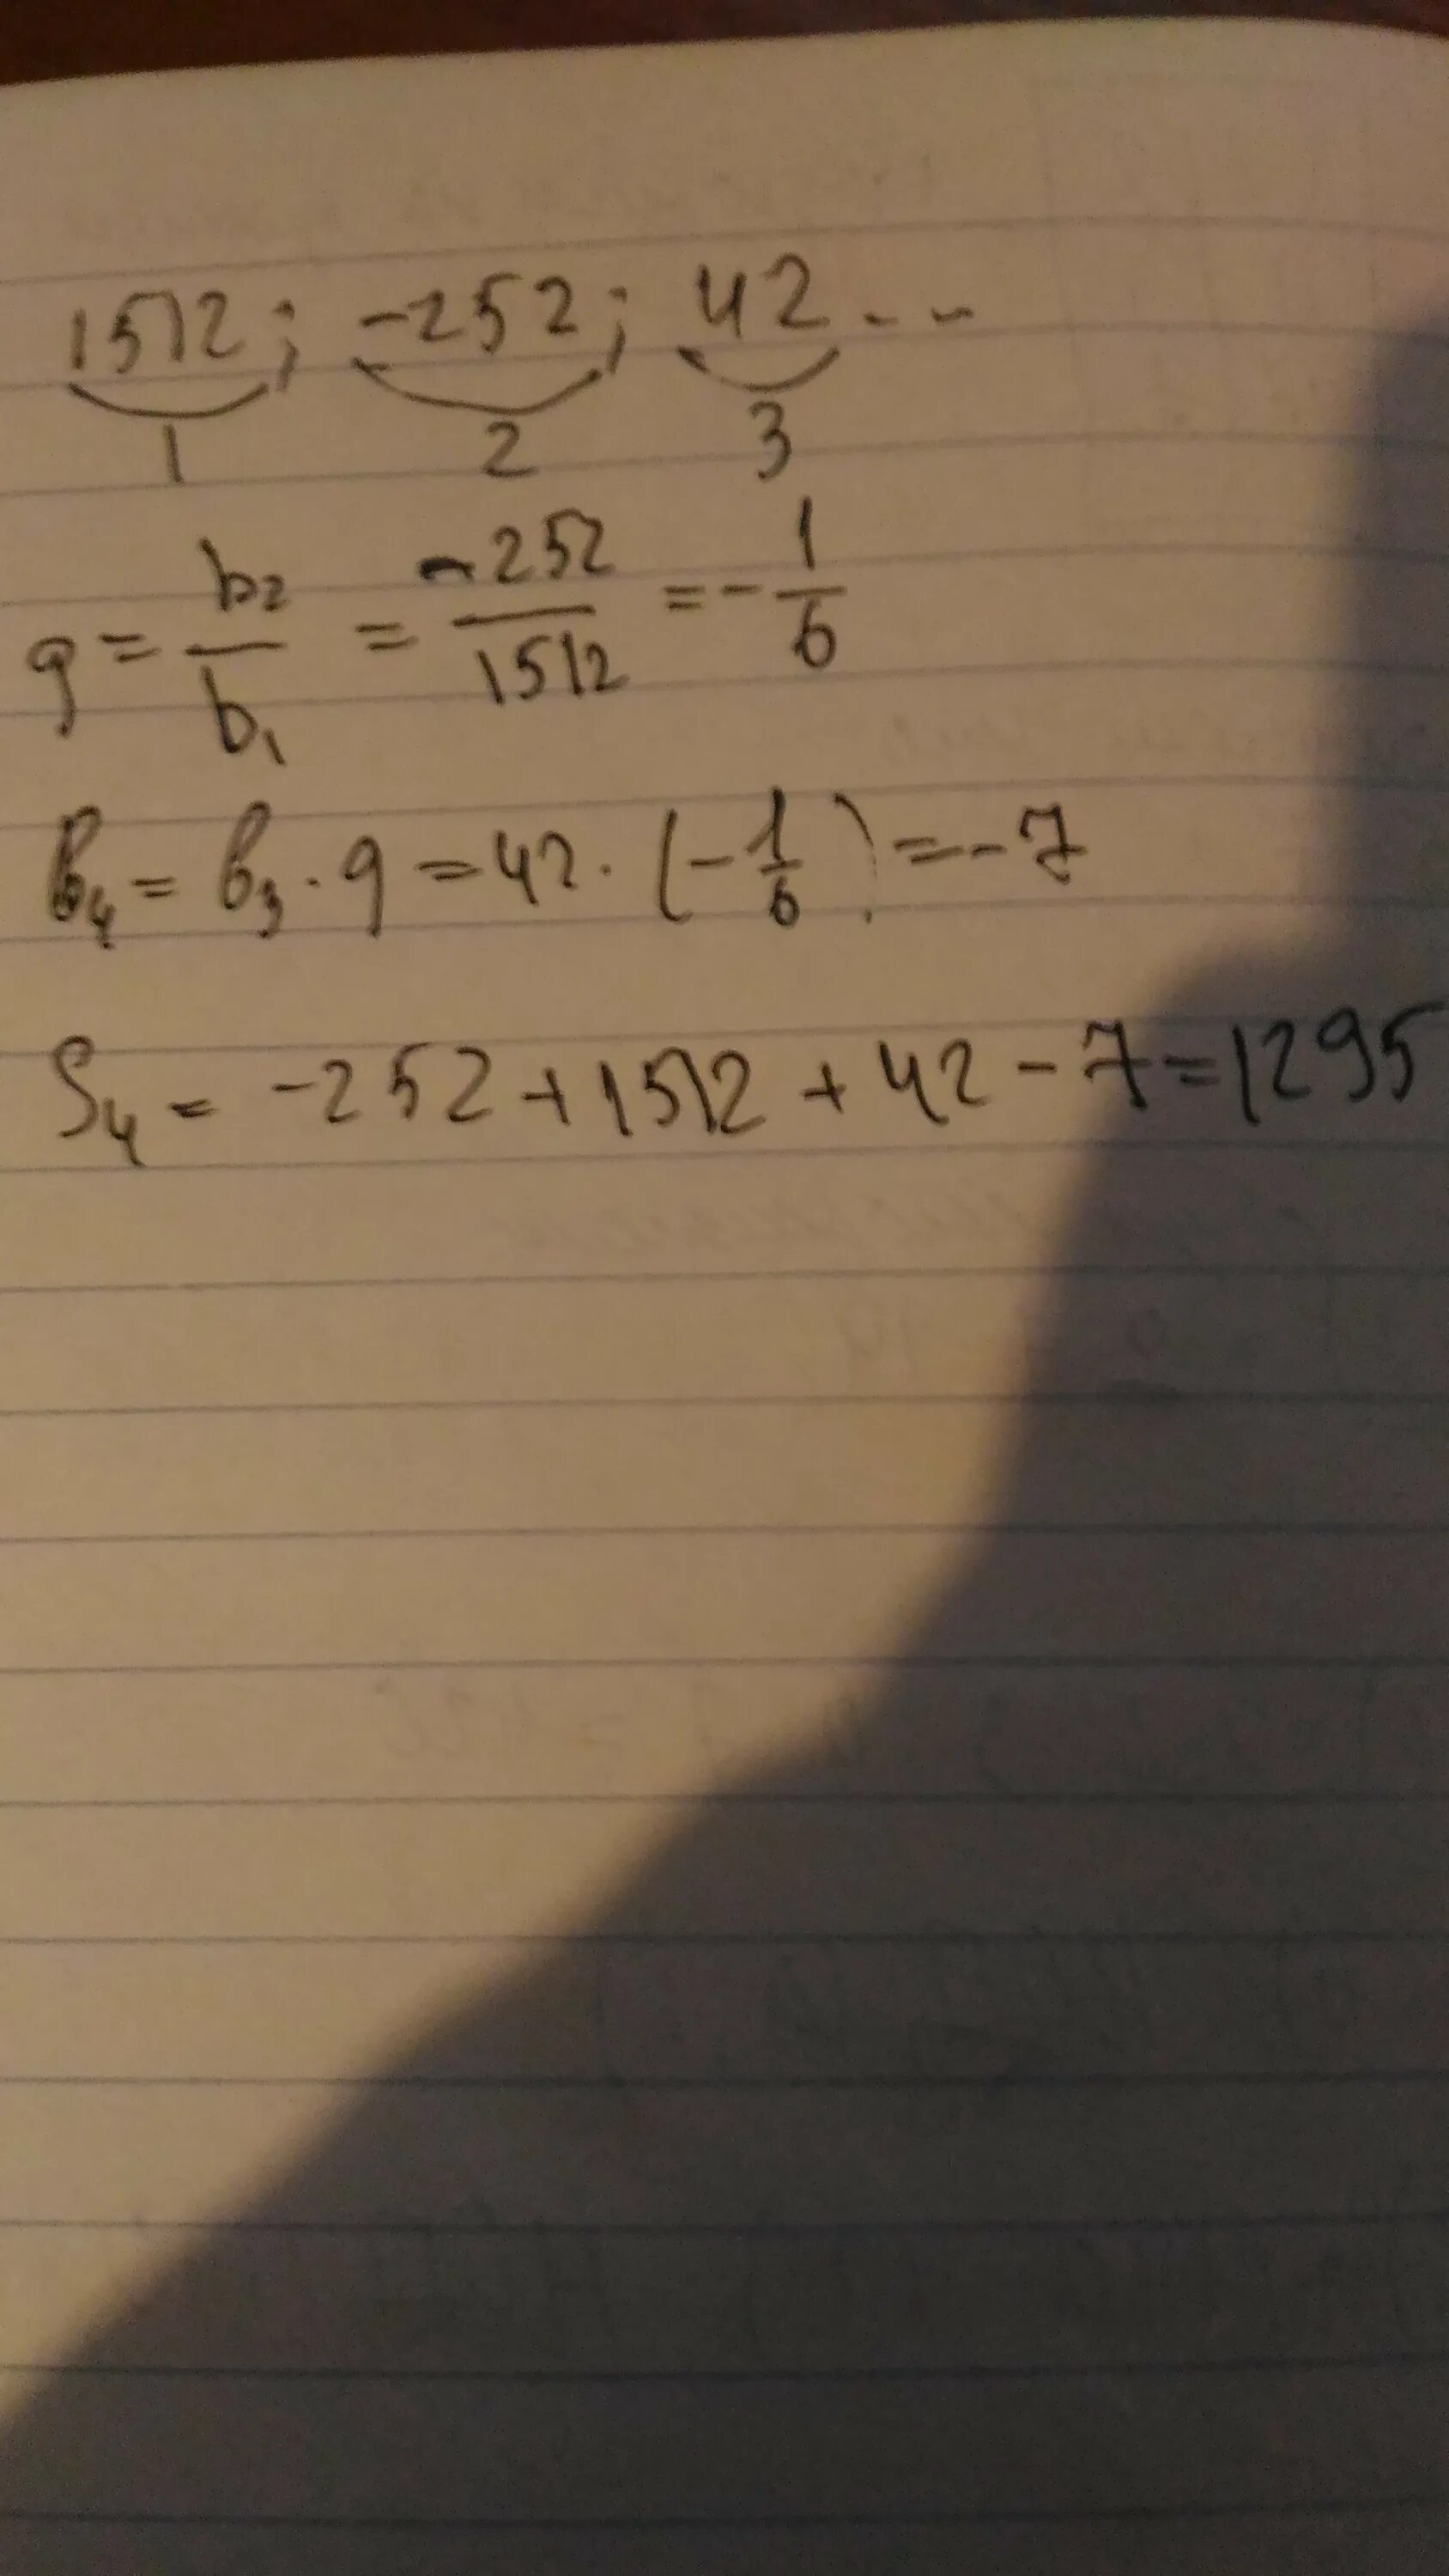 1512; -252; 42...
1 2 3
q = b₂/b₁ = -252/1512 = -1/6
b₄ = b₃ · q = 42 · (-1/6) = -7
S₄ = -252 + 1512 + 42 - 7 = 1295